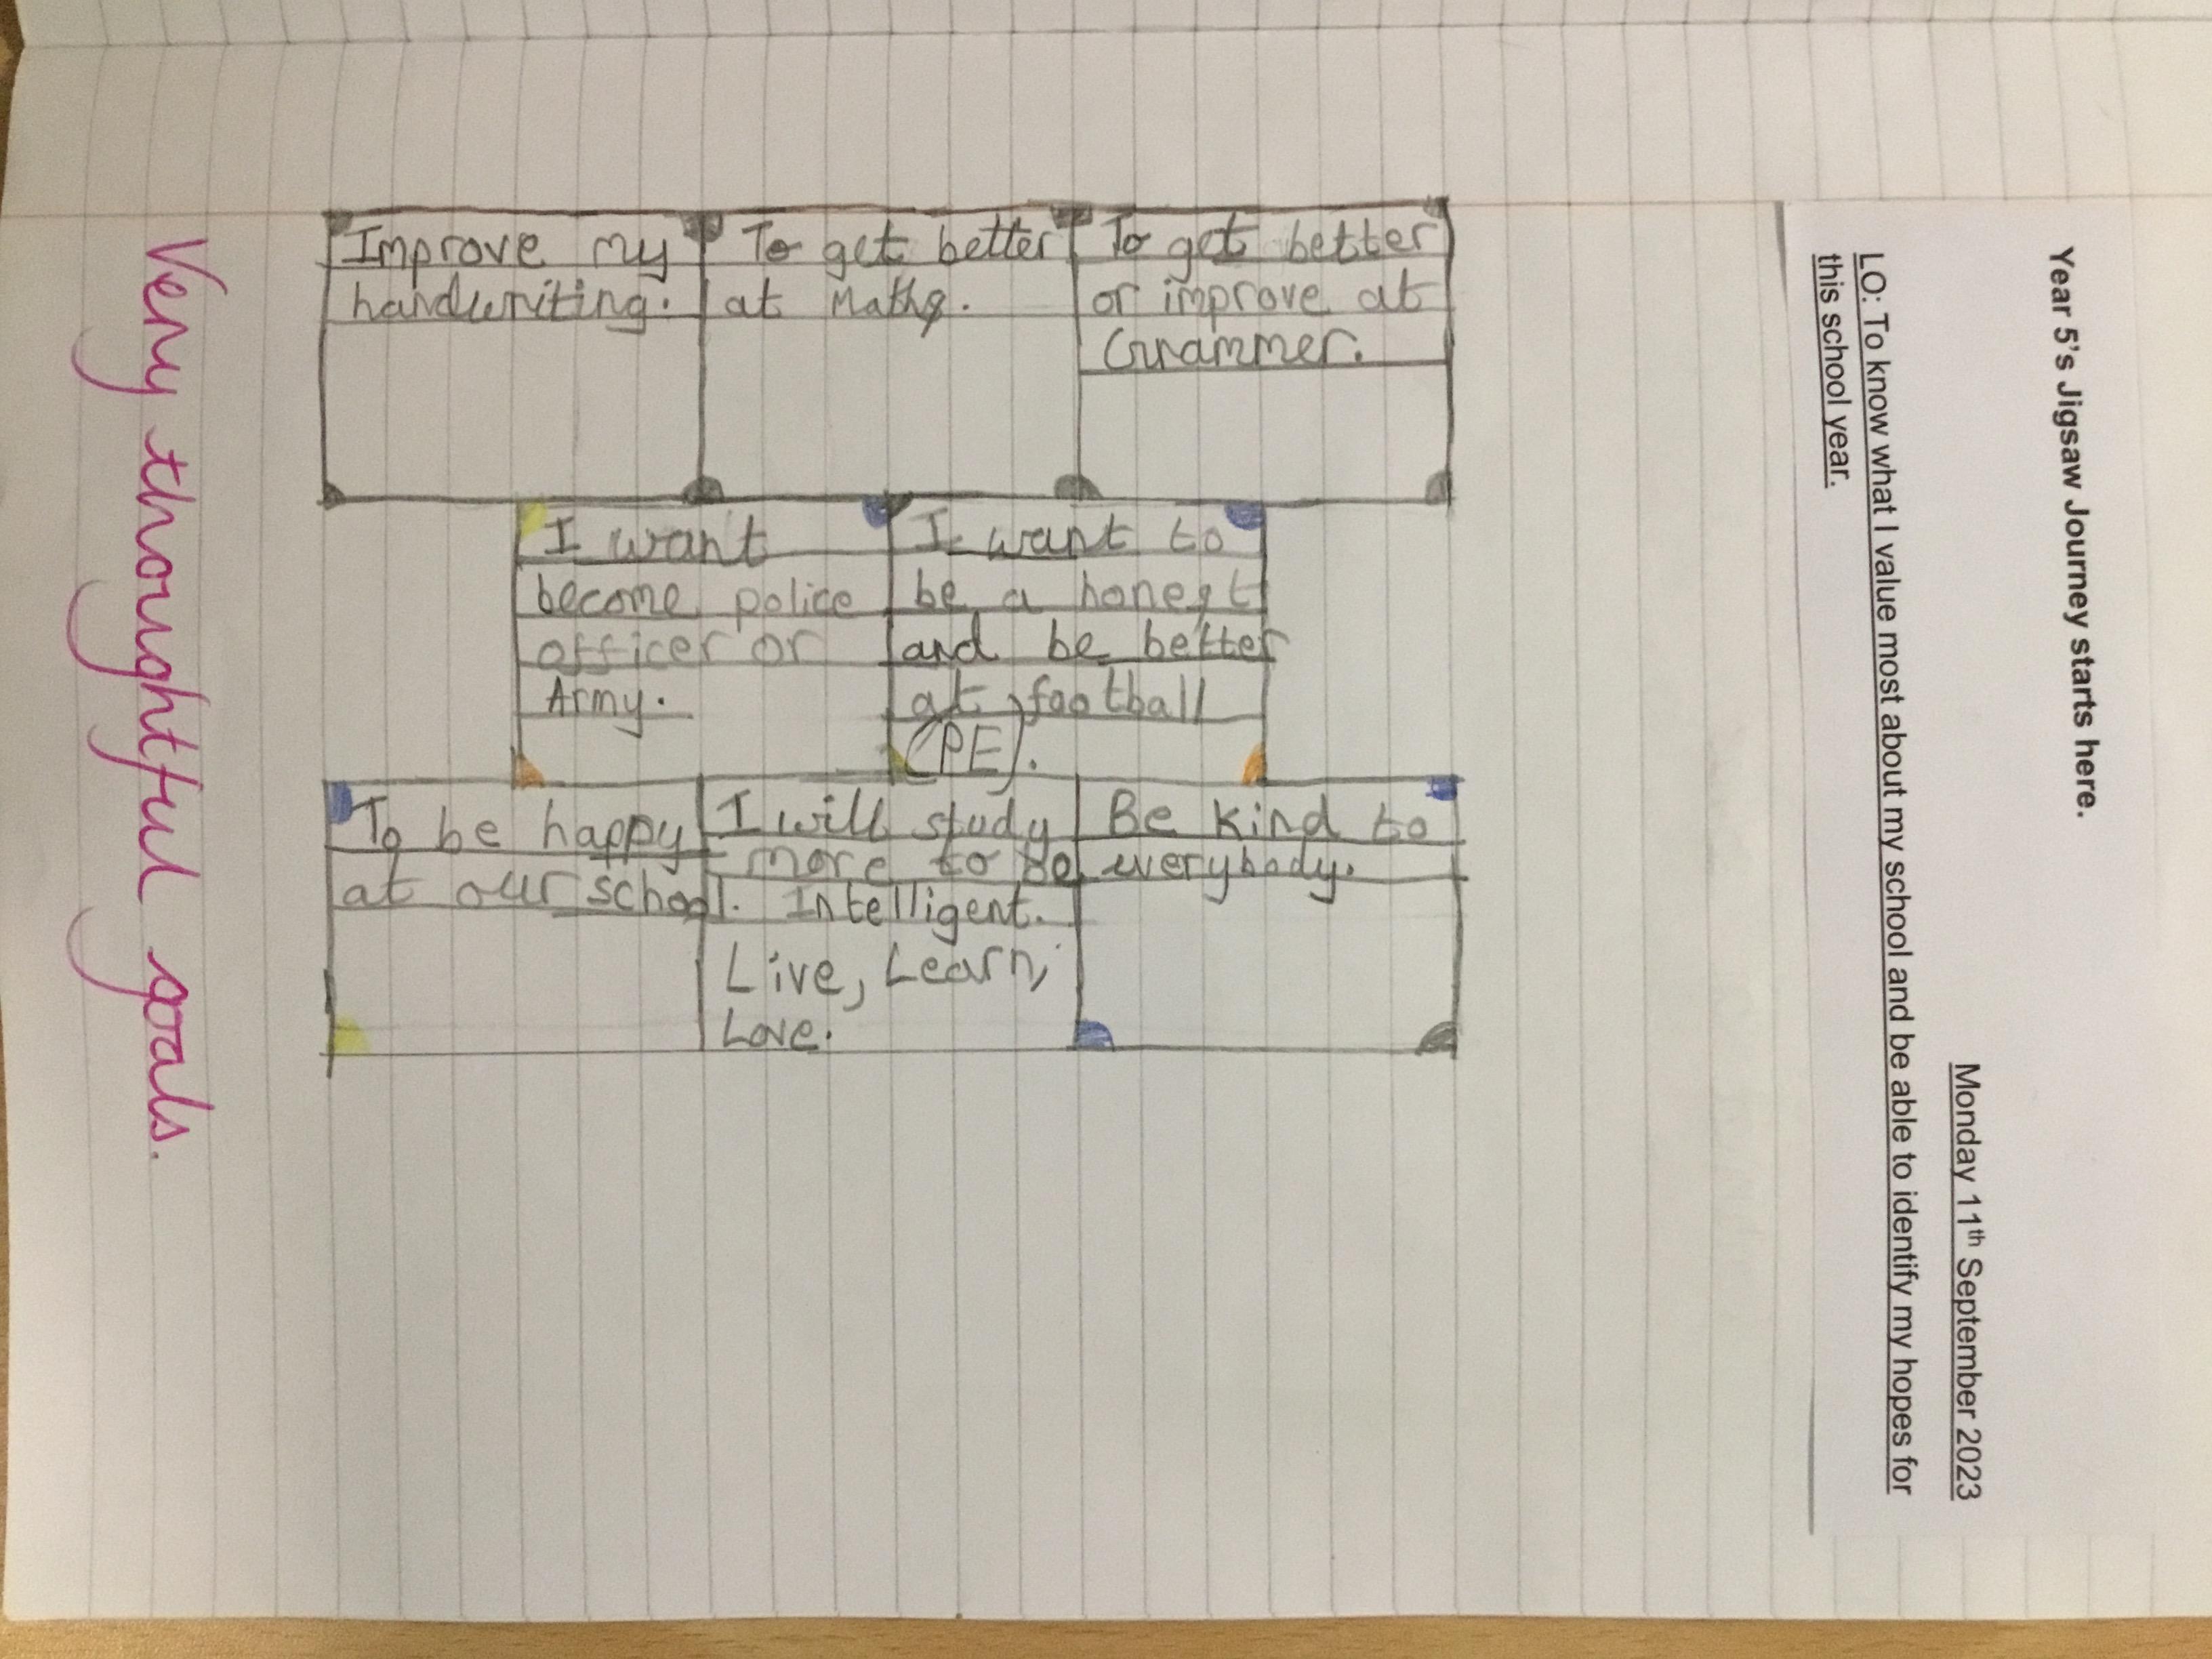 Year 5's Jigsaw Journey starts here.
Monday 11th September 2023
LO: To know what I value most about my school and be able to identify my hopes for
this school year.
Improve my
handwriting.
To get better
at Maths.
To get better
or improve at
Grammer.
I want
become police
officer or
Army.
I want to
be a honest
and be better
at football
(PE).
To be happy
at our school.
I will study
more to be
Intelligent.
Live, Learn,
Love.
Be kind to
everybody.
Very thoughtful goals.